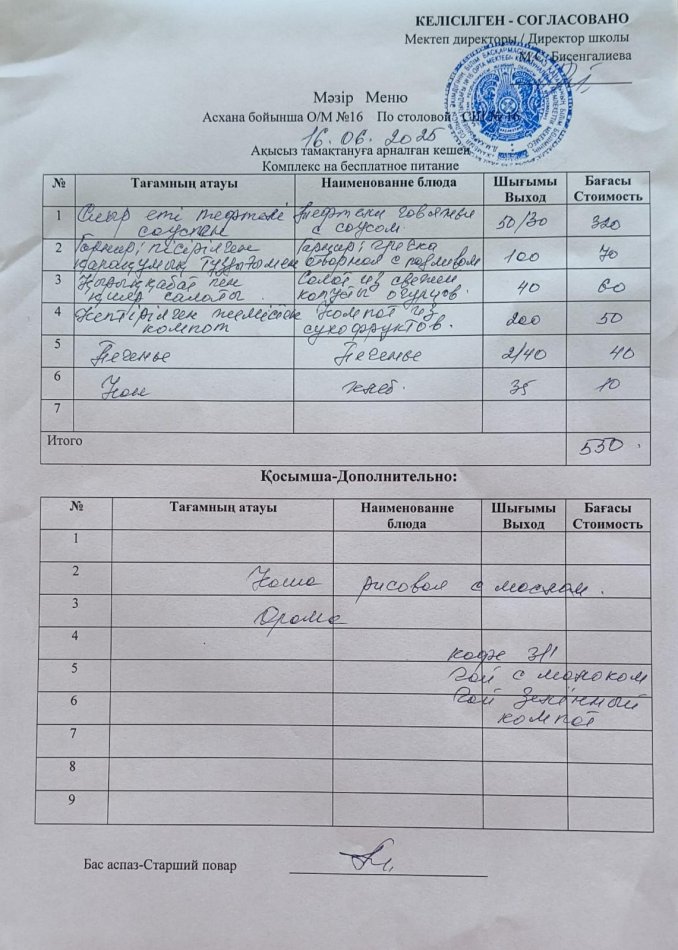 КЕЛІСІЛГЕН - СОГЛАСОВАНО
Мектеп директоры / Директор школы
М.С. Бисенгалиева
Мәзір Меню
Асхана бойынша О/М №16 По столовой СШ № 16
16.06.2025
Ақысыз тамақтануға арналған кешен
Комплекс на бесплатное питание
№ Тағамның атауы Наименование блюда Шығымы Выход Бағасы Стоимость
1 Сиыр еті тефтелі соуспен Тефтели говяжьи с соусом 50/30 320
2 Гарнир; пісірілген қарақұмық тұздығымен Гарнир; гречка отварная с подливом 100 70
3 Қырыққабат пен қияр салаты. Салат из свежей капусты огурцов. 40 60
4 Кептірілген жемістен компот Компот из сухофруктов. 200 50
5 Печенье Печенье 2/40 40
6 Нан хлеб. 35 10
7
Итого 550.
Қосымша-Дополнительно:
№ Тағамның атауы Наименование блюда Шығымы Выход Бағасы Стоимость
1
2 Каша рисовая с маслом.
3 Орама
4
кофе 3/1
5 чай с молоком
6 чай зелённый
компот
7
8
9
Бас аспаз-Старший повар